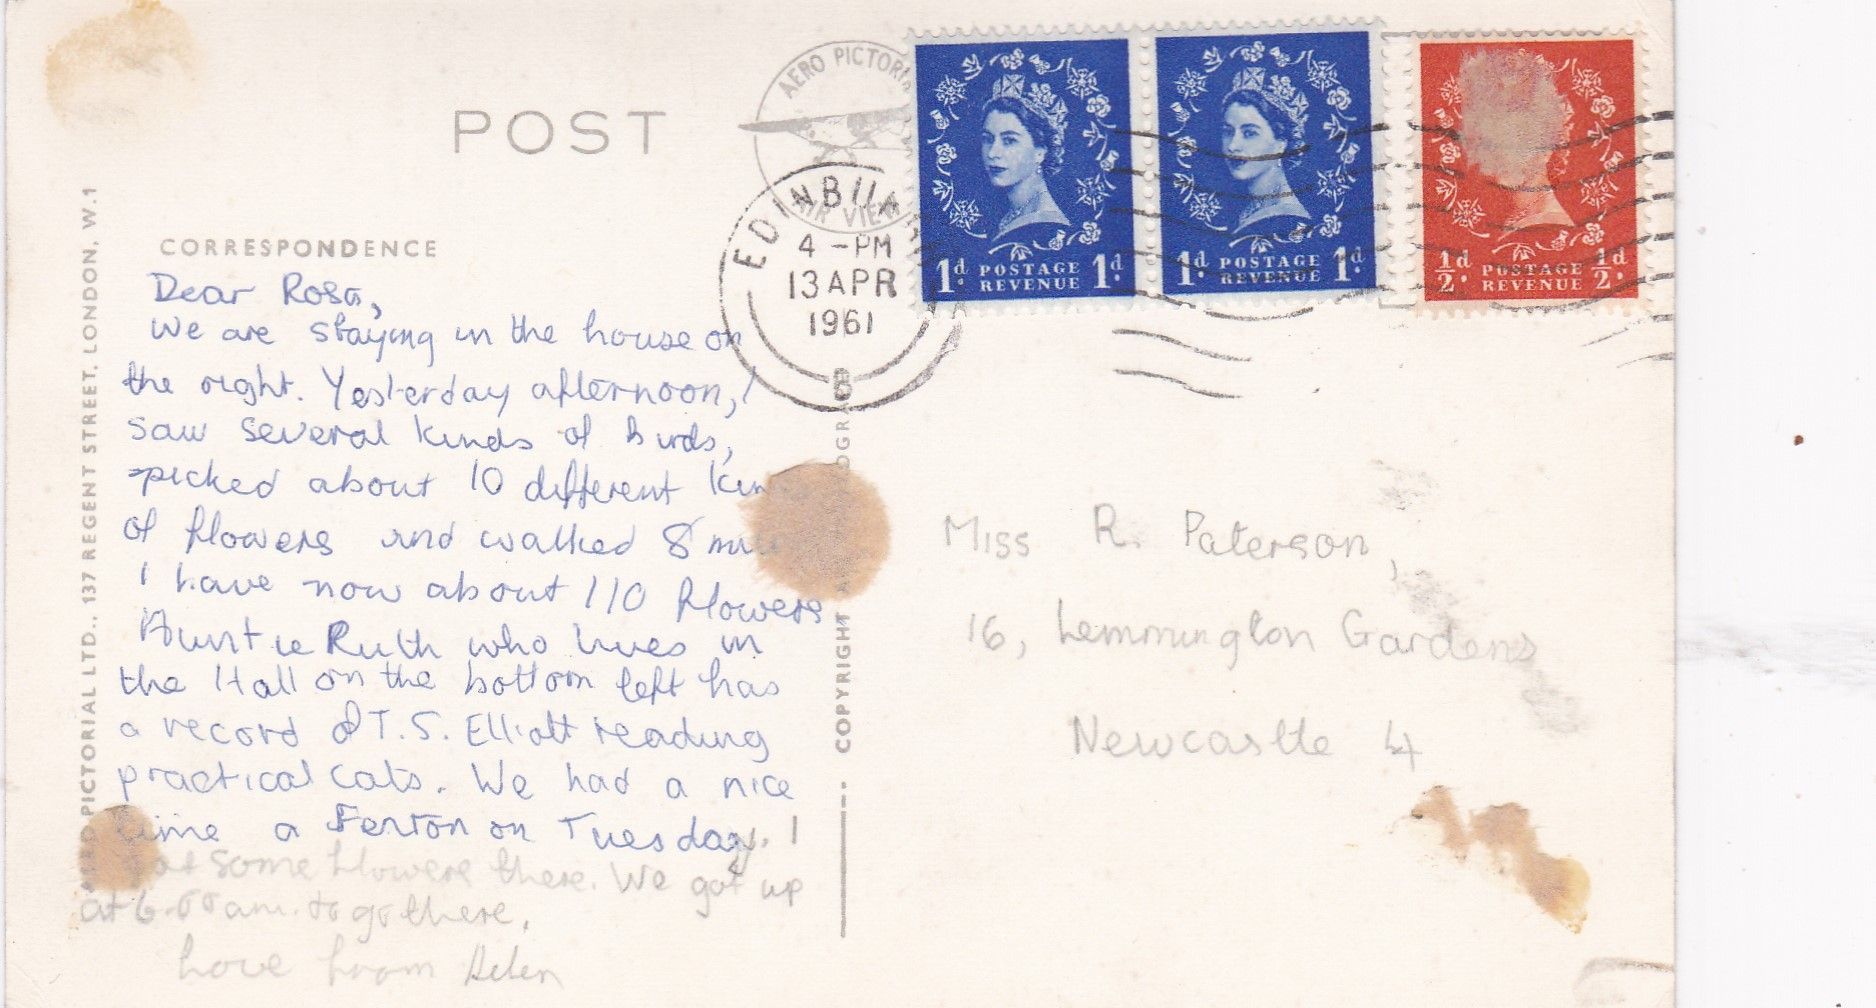 POST
AERO PICTORI
AIR VIEW
EDINBU
4 - PM
13 APR
1961
1d POSTAGE 1d
REVENUE
1d POSTAGE 1d
REVENUE
½d POSTAGE ½d
REVENUE
CORRESPONDENCE
Dear Rosa,
We are staying in the house on
the right. Yesterday afternoon, I
saw several kinds of birds,
picked about 10 different kin
of flowers and walked 8
I have now about 110 flowers
Auntie Ruth who lives in
the Hall on the bottom left has
a record of T. S. Elliott reading
practical cats. We had a nice
time a Fenton on Tuesday. I
some flowers there. We got up
at 6.00 am. to go there.
Love from Helen
PICTORIAL LTD., 137 REGENT STREET, LONDON, W.1
COPYRIGHT
Miss R. Paterson,
16, Lemmington Gardens
Newcastle 4